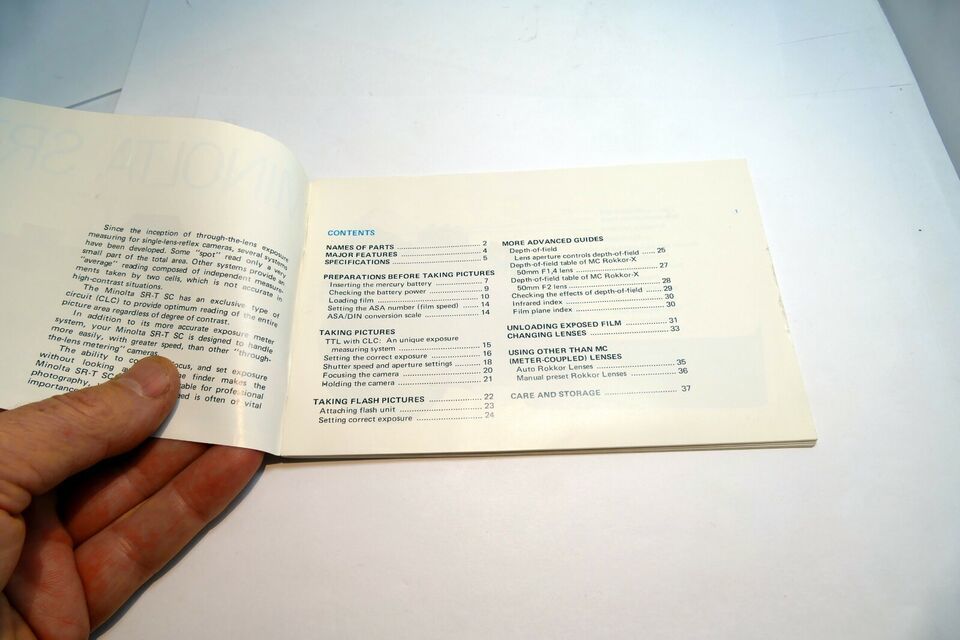 Since the inception of through-the-lens exposure
measuring for single-lens-reflex cameras, several systems
have been developed. Some "spot" read only a very
small part of the total area. Other systems provide an
"average" reading composed of independent measure-
ments taken by two cells, which is not accurate in
high-contrast situations.
The Minolta SR-T SC has an exclusive type of
circuit (CLC) to provide optimum reading of the entire
picture area regardless of degree of contrast.
In addition to its more accurate exposure meter
system, your Minolta SR-T SC is designed to handle
more easily, with greater speed, than other "through-
the-lens metering" cameras.
The ability to focus, and set exposure
without looking finder makes the
Minolta SR-T SC for professional
photography, is often of vital
importance
1
CONTENTS
NAMES OF PARTS 2
MAJOR FEATURES 4
SPECIFICATIONS 5
PREPARATIONS BEFORE TAKING PICTURES
Inserting the mercury battery 7
Checking the battery power 9
Loading film 10
Setting the ASA number (film speed) 14
ASA/DIN conversion scale 14
TAKING PICTURES
TTL with CLC: An unique exposure
measuring system 15
Setting the correct exposure 16
Shutter speed and aperture settings 18
Focusing the camera 20
Holding the camera 21
TAKING FLASH PICTURES 22
Attaching flash unit 23
Setting correct exposure 24
MORE ADVANCED GUIDES
Depth-of-field
Lens aperture controls depth-of-field 25
Depth-of-field table of MC Rokkor-X
50mm F1,4 lens 27
Depth-of-field table of MC Rokkor-X
50mm F2 lens 28
Checking the effects of depth-of-field 29
Infrared index 30
Film plane index 30
UNLOADING EXPOSED FILM 31
CHANGING LENSES 33
USING OTHER THAN MC
(METER-COUPLED) LENSES
Auto Rokkor Lenses 35
Manual preset Rokkor Lenses 36
CARE AND STORAGE 37